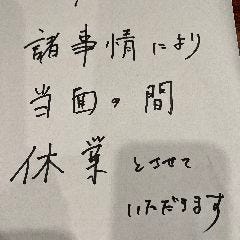 諸事情により
当面の間
休業とさせて
いただきます